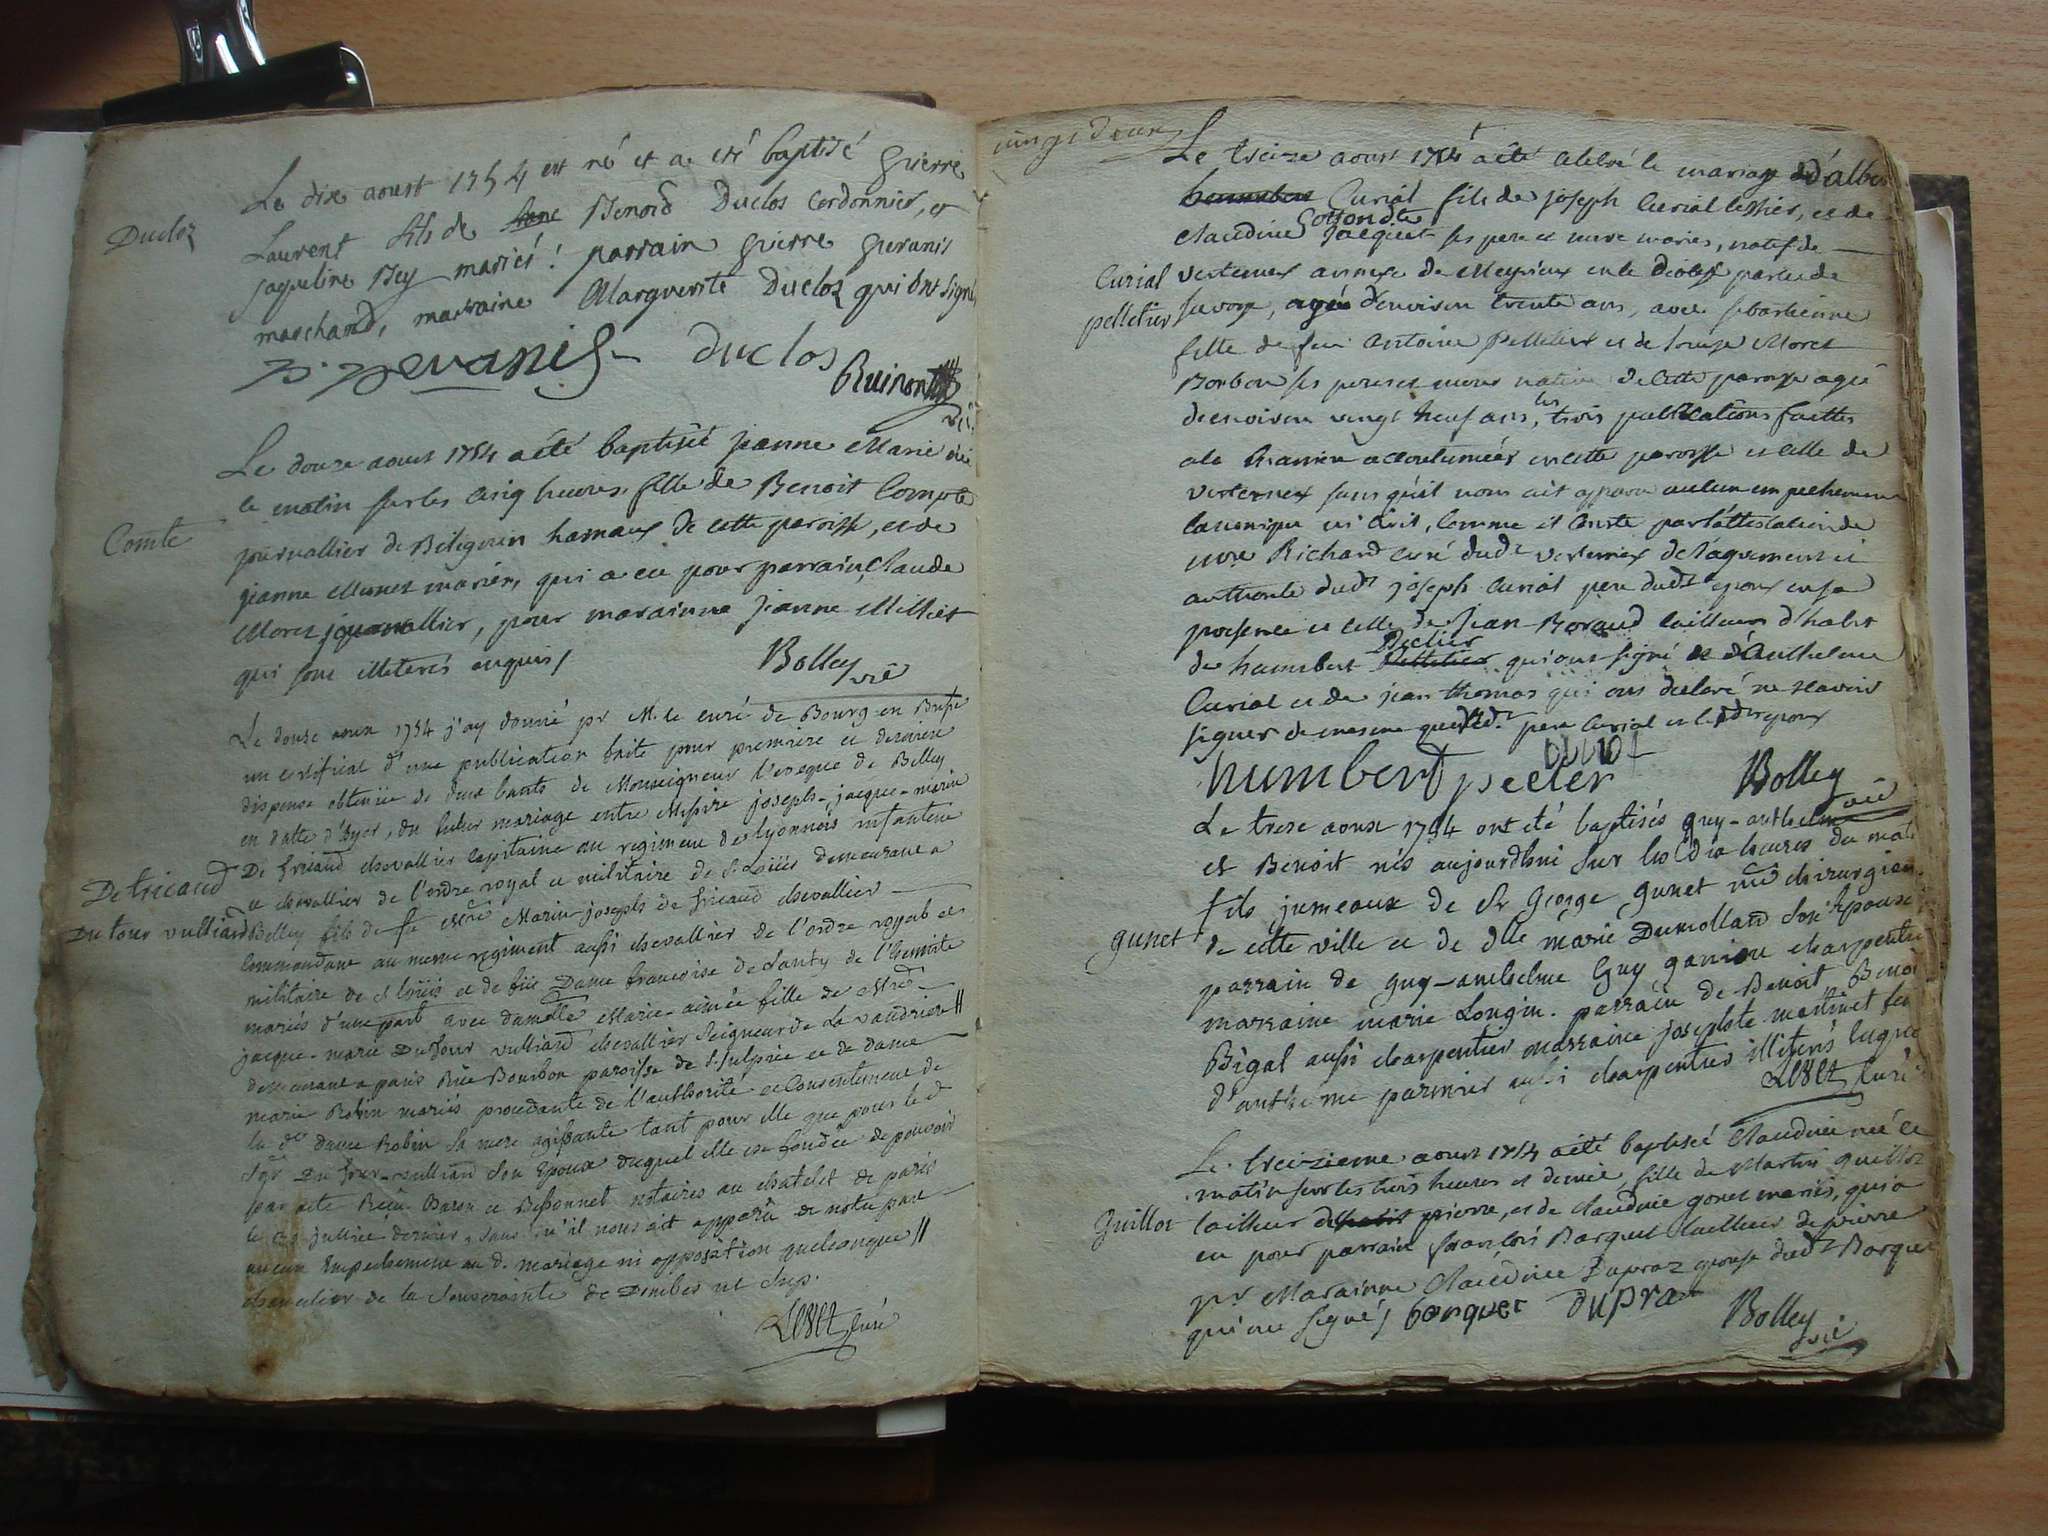 Ducloz
Le dix aoust 1754 est né et a été baptisé pierre
Laurent fils de Benoid Duclos Cordonnier, et
jaqueline Rey mariés: parrain pierre
marchand, marraine Marguerite Ducloz qui ont signé
duclos
vic.
Comte
Le douze aoust 1754 a été baptisée jeanne Marie née
le matin sur les cinq heures fille de Benoit Compte
journallier de hameau de cette paroisse, et de
jeanne mariés, qui a eu pour parrain Claude
Moret journallier, pour maraine jeanne Milliet
qui sont illeterés enquis /
Bolley vic
De tricaud
Du four vulliard
Le douse aoust 1754 j'ay donné pr M. le curé de Bourg en Bresse
un certificat d'une publication faite pour premiere et derniere
dispense obtenüe de deux bants de Monseigneur l'eveque de Belley
en datte d'hyer, du futur mariage entre Messire joseph-jacque-marin
De tricaud chevallier Capitaine au regiment de lyonnois infanterie
et chevallier de l'ordre royal et militaire de St Loüis demeurant a
Belley fils de fe Mre Marin joseph de tricaud chevallier
Commandant au meme regiment aussi chevallier de l'ordre royal et
militaire de St Loüis et de füe Dame francoise de
mariés d'une part avec damelle Marie-aimée fille de Mre
jacque-marie Dufour vulliard chevallier Seigneur de La vaudriere //
demeurant a paris Rüe Bourbon paroisse de St Sulpice et de dame
marie Robin mariés procedante de l'authorité et Consentement de
la de dame Robin Sa mere agissante tant pour elle que pour le d
Sgr Du four-vulliard Son Epoux duquel elle est fondée de pouvoir
par acte Reçu Baron et Bessonnet notaires au chatelet de paris
le juillet dernier, sans qu'il nous ait apparü de notre part
aucun Empechement au d. mariage ni opposition quelconque //
de la Souveraineté de Dombes ut Sup.
curé
vingt deux
Curial
pelletier
Le treize aoust 1754 a été celebré le mariage d'albert
Curial fils de joseph Curial, et de
claudine ses pere et mere mariés, natif de
annexe de Meyrieux en le diocese partie de
Savoye, agé d'environ trente ans, avec sebastienne
fille de feu Antoine Pelletier et de Louise Moret
Bonbon ses pere et mere native de cette paroisse agée
d'environ vingt neuf ans, les trois publications faittes
a la maniere accoutumées en cette paroisse et celle de
sans qu'il nous ait apparu aucun empechement
canonique ni civil, comme il conste par l'attestation de
Richard curé dudt de l'agrement et
authorité dudt joseph Curial pere dudt epoux en sa
presence et celle de jean Beraud tailleur d'habit
de humbert Peclier qui ont signé et d'Anthelme
Curial et de jean thomas qui ont declaré ne scavoir
signer de mesme que ledt. pere Curial et les dts epoux
humbert pecler
Bolley
vic
gunet
Le treze aoust 1754 ont eté baptisés guy-anthelme
et Benoit nés aujourdhui sur les dix heures du matin
fils jumeaux de Sr George gunet me chirurgien
de cette ville et de dlle marie Dumollard son epouse
parrain de guy-anthelme Guy charpentier
marraine marie Longin. parrain de Benoit Benoit
Bigal aussi charpentier marraine josephte martinet fe
d'anthelme parmier aussi charpentier illiterés
curé
guillot
Le treizieme aoust 1754 a été baptisée Claudine née le
matin sur les trois heures et demie, fille de Martin guillot
tailleur de pierre, et de claudine gonet mariés, qui a
eu pour parrain françois Barquet tailleur de pierre
pr Marainne Claudine Dupraz epouse dudt Barquet
qui ont signés / barquet dupra
Bolley
vic